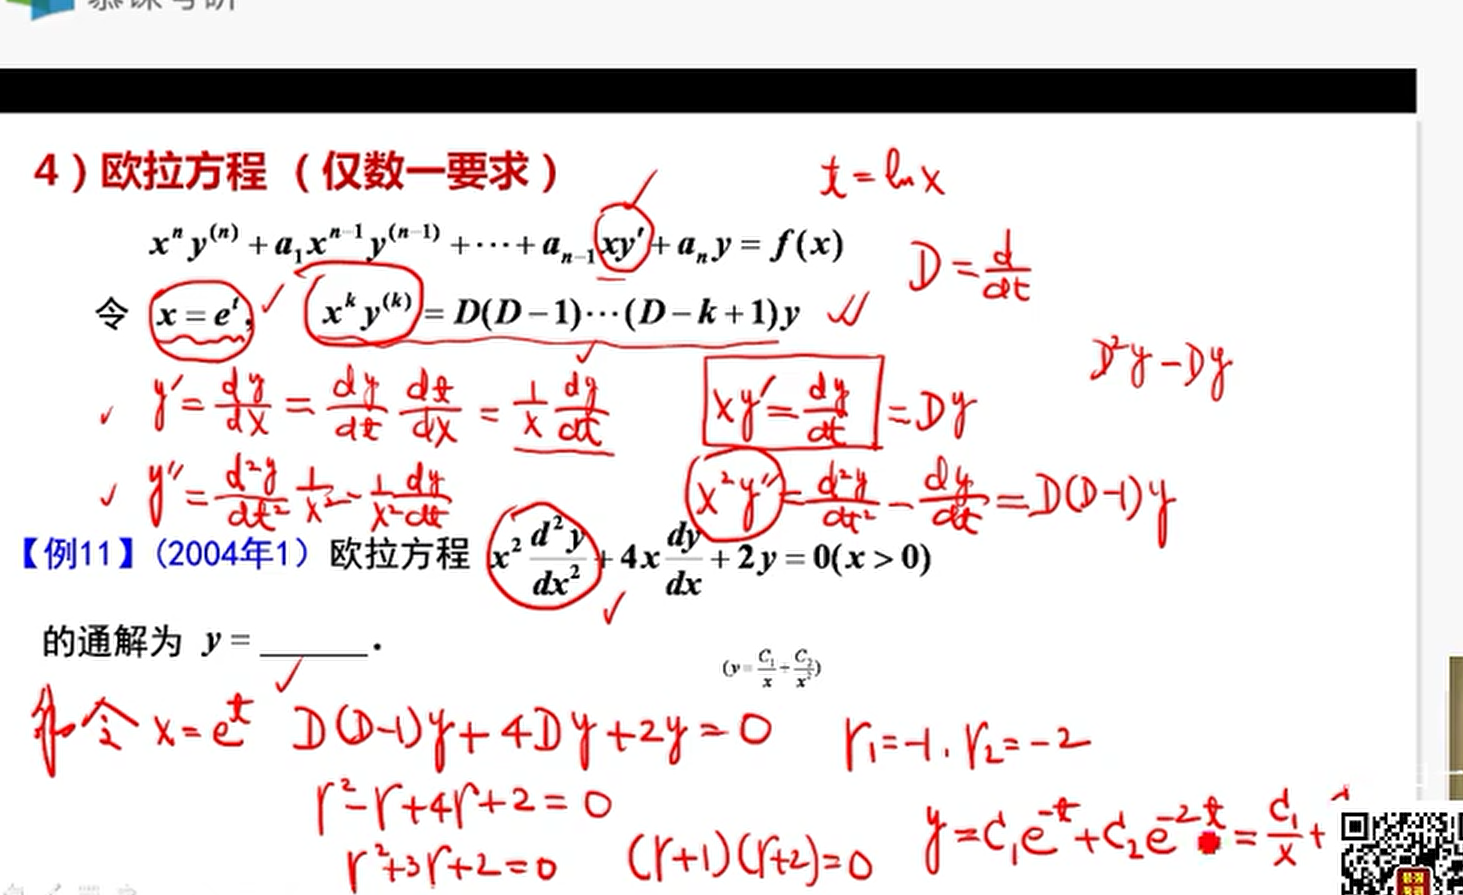 慕课考研
4）欧拉方程 （仅数一要求）
t = ln x
xⁿy⁽ⁿ⁾ + a₁xⁿ⁻¹y⁽ⁿ⁻¹⁾ + ⋯ + aₙ₋₁xy′ + aₙy = f(x)
D = d/dt
令 x = eᵗ, xᵏy⁽ᵏ⁾ = D(D−1)⋯(D−k+1)y
D²y − Dy
y′ = dy/dx = dy/dt dt/dx = 1/x dy/dt
xy′ = dy/dt = Dy
y″ = d²y/dt² 1/x² − 1/x² dy/dt
x²y″ = d²y/dt² − dy/dt = D(D−1)y
【例11】（2004年1）欧拉方程 x² d²y/dx² + 4x dy/dx + 2y = 0(x > 0)
的通解为 y = ______.
(y = C₁/x + C₂/x²)
令 x = eᵗ D(D−1)y + 4Dy + 2y = 0 r₁ = −1, r₂ = −2
r² − r + 4r + 2 = 0
y = C₁e⁻ᵗ + C₂e⁻²ᵗ = C₁/x +
r² + 3r + 2 = 0 (r+1)(r+2) = 0